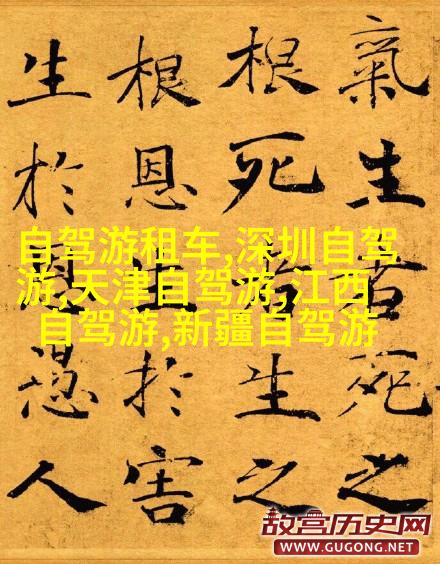 氣生者死之
根死者生之
根恩生於害
生於恩愚人
自驾游租车,深圳自驾
游,天津自驾游,江西
自驾游,新疆自驾游
故宫历史网
WWW.GUGONG.NET